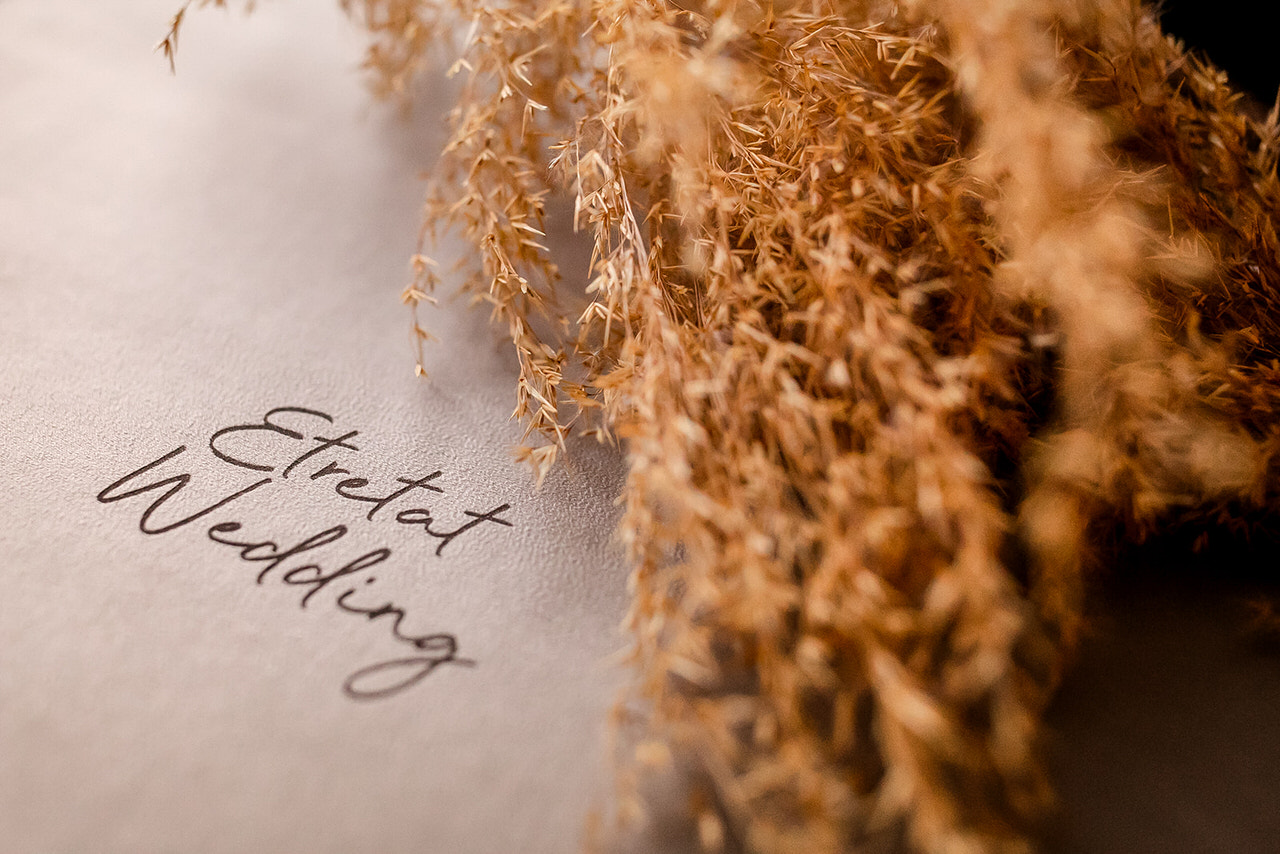 Etretat
Wedding